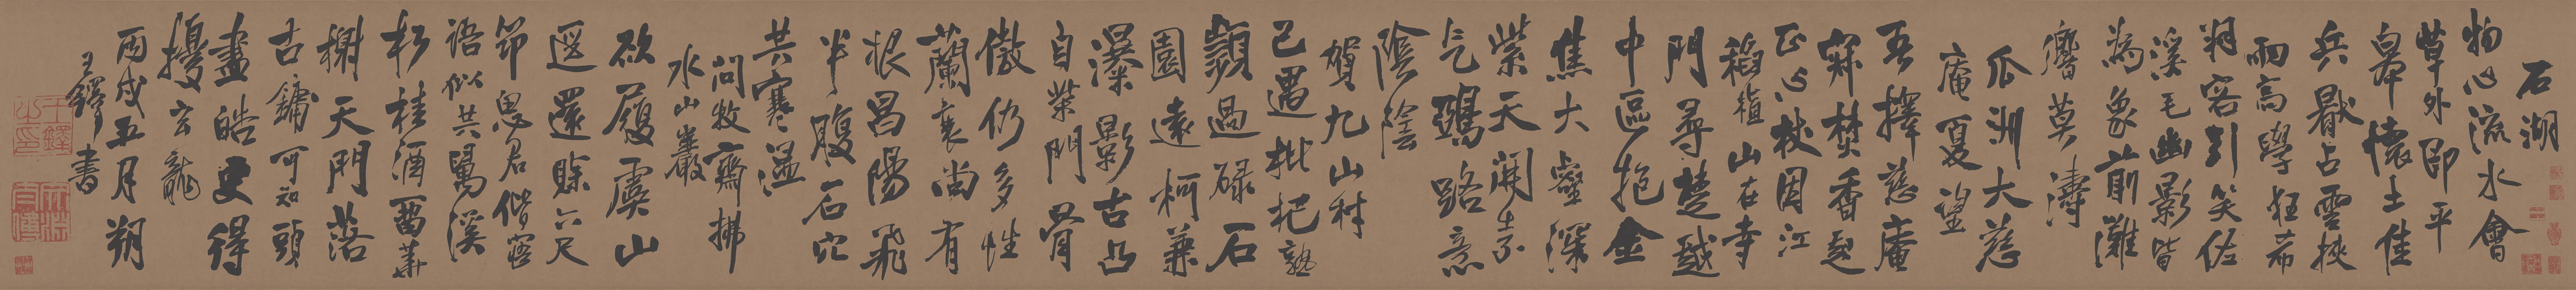 石湖
物心流水會
草外即平
皋懷土佳
兵戢占雲挾
雨高學狂希
羽客引笑依
溪毛幽影皆
為象前灘
響莫濤
瓜洲大慈
庵夏望
吾擇慈庵
寐焚香起
正心杖因江
稻植山在寺
門尋楚越
中區抱金
焦大壑深
紫天開素
氣鵶路意
陰陰
賀九山村
已過枇杷熟
顥過碌石
園遠柯兼
瀑影古凸
自柴門骨
傲仍多性
蘭衰尚有
根昌陽飛
半腹石穴
共寒溫
問牧齋拂
水山巖
欲履虞山
遐還賒六尺
節思君偕寤
語似共駕溪
杉桂酒留華
榭天門落
古鏞可知頭
盡皓更得
擾玄龍
丙戌五月朔
王鐸書
王鐸之印